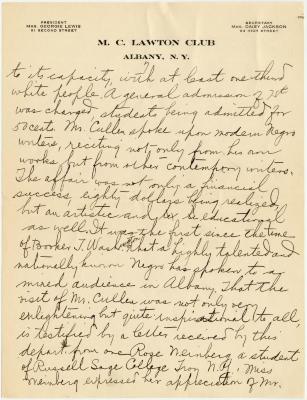 PRESIDENT
MRS. GEORGIE LEWIS
81 SECOND STREET
SECRETARY
MRS. DAISY JACKSON
HIGH STREET
M. C. LAWTON CLUB
ALBANY, N. Y.
to its capacity, with at least one-third
white people. A general admission of 75¢
was charged, students being admitted for
50 cents. Mr. Cullen spoke upon modern Negro
writers, reciting not only from his own
works but from other contemporary writers.
The affair was not only a financial
success, eighty dollars being realized,
but an artistic and educational
as well. It was the first since the time
of Booker T. Wash. that a highly talented and
nationally known Negro has spoken to a
mixed audience in Albany. That the
visit of Mr. Cullen was not only very
enlightening but quite inspirational to all
is testified by a letter received by this
depart. from one Rose Neinberg a student
of Russell Sage College Troy N.Y. Miss
Neinberg expressed her appreciation of Mr.